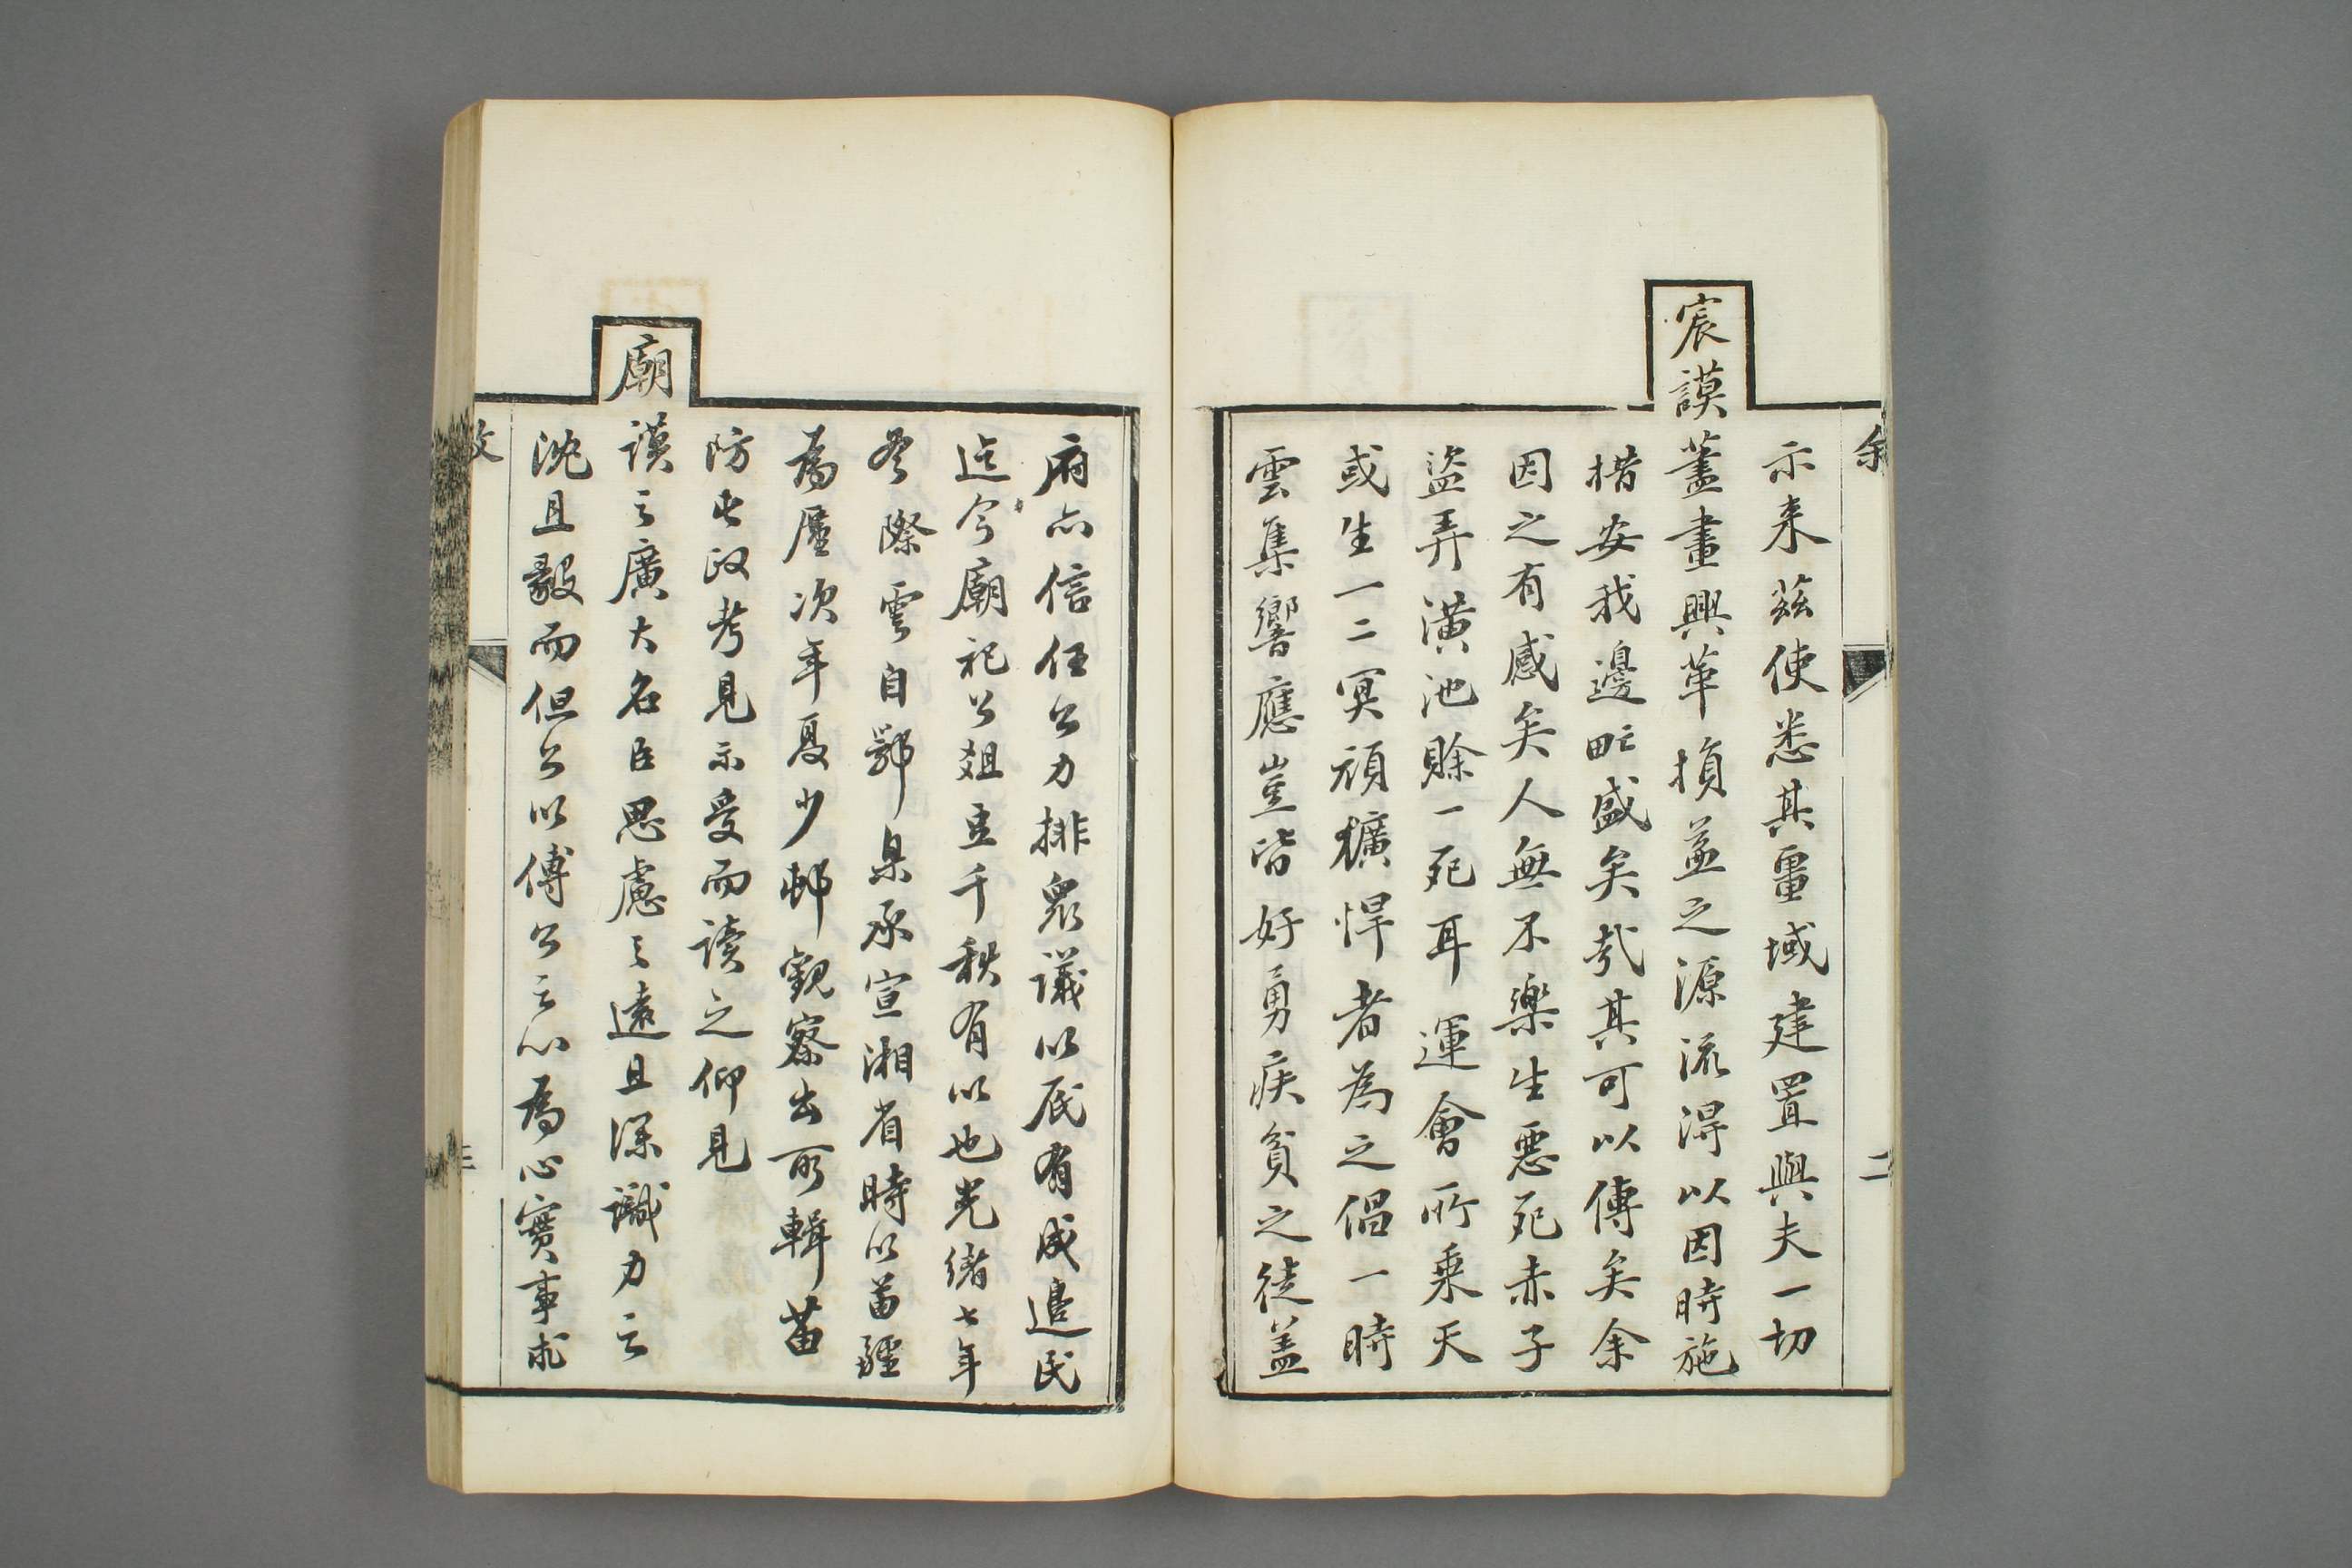 余
二
示来茲使悉其畺域建置與夫一切
宸謨藎畫興革損益之源流淂以因時施
措安我邊甿盛矣㢤其可以傳矣余
因之有感矣人無不樂生惡死赤子
盜弄潢池賖一死耳運會所乘天
或生一二冥頑獷悍者為之倡一時
雲集響應豈皆好勇疾貧之徒盖
府亦信任公力排衆議以底有成邉民
迄今廟祀公爼豆千秋有以也光緒七年
冬際雲自鄂臬承宣湘省時以苗疆
為廑次年夏少邨觀察出所輯苗
防屯政考見示受而讀之仰見
廟謨之廣大名臣思慮之遠且深識力之
沈且毅而但公以傅公之心為心實事求
攵
三